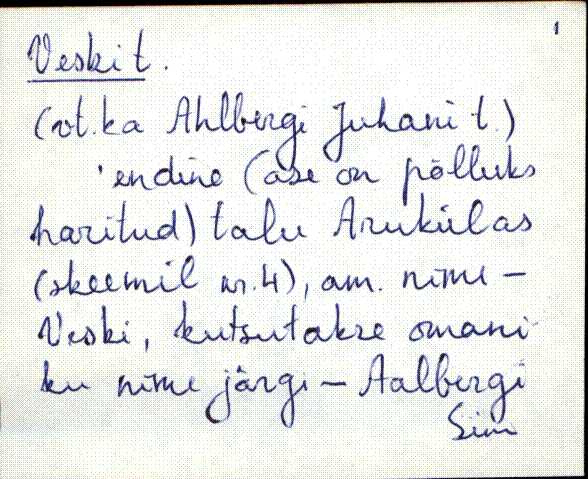 1
Veski t.
(vt. ka Ahlbergi Juhani t.)
'endine (ase on põlluks
haritud) talu Arukülas
(skeemil nr. 4), am. nimi –
Veski, kutsutakse omani
ku nime järgi – Aalbergi
Sim